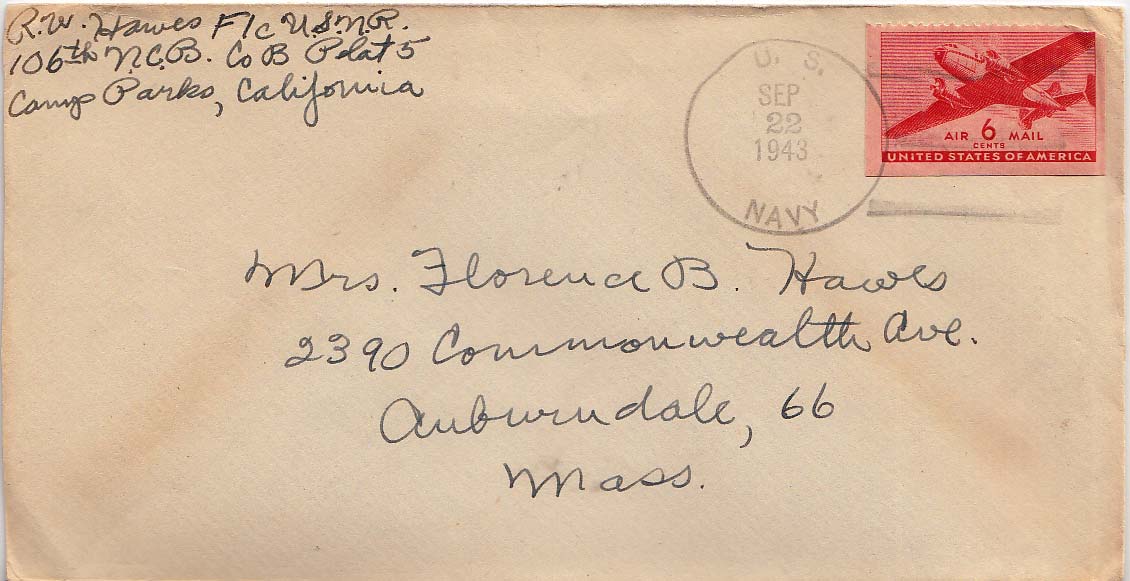 R.W. Hawes F1c U.S.N.R.
106th N.C.B. Co B Plat 5
Camp Parks, California
U. S.
SEP
22
1943
NAVY
AIR 6 MAIL
CENTS
UNITED STATES OF AMERICA
Mrs. Florence B. Hawes
2390 Commonwealth Ave.
Auburndale, 66
Mass.